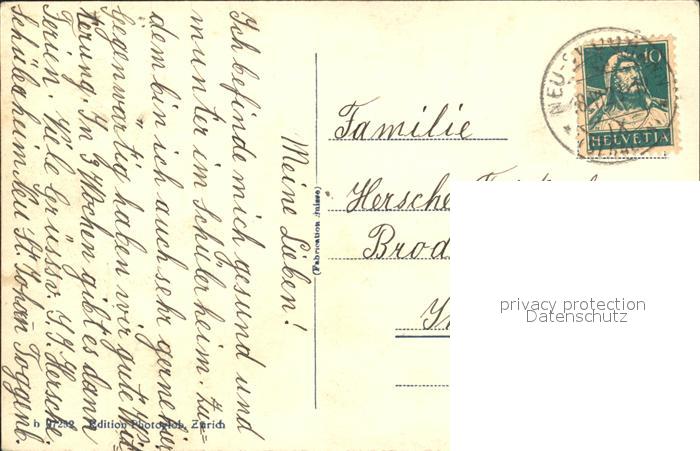 Meine Lieben!
Ich befinde mich gesund und
munter im Schülerheim. Zu-
dem bin ich auch sehr gerne hier
Gegenwärtig haben wir gute Wit-
terung. In 3 Wochen gibt es dann
Ferien. Viele Grüsse v. J. J. Hersche.
Schülerheim Neu St. Johann Toggenb.
Familie
Hersche
Brod
(Fabrication Suisse)
b 97232 Edition Photoglob, Zürich
NEU-S
10
HELVETIA
privacy protection
Datenschutz